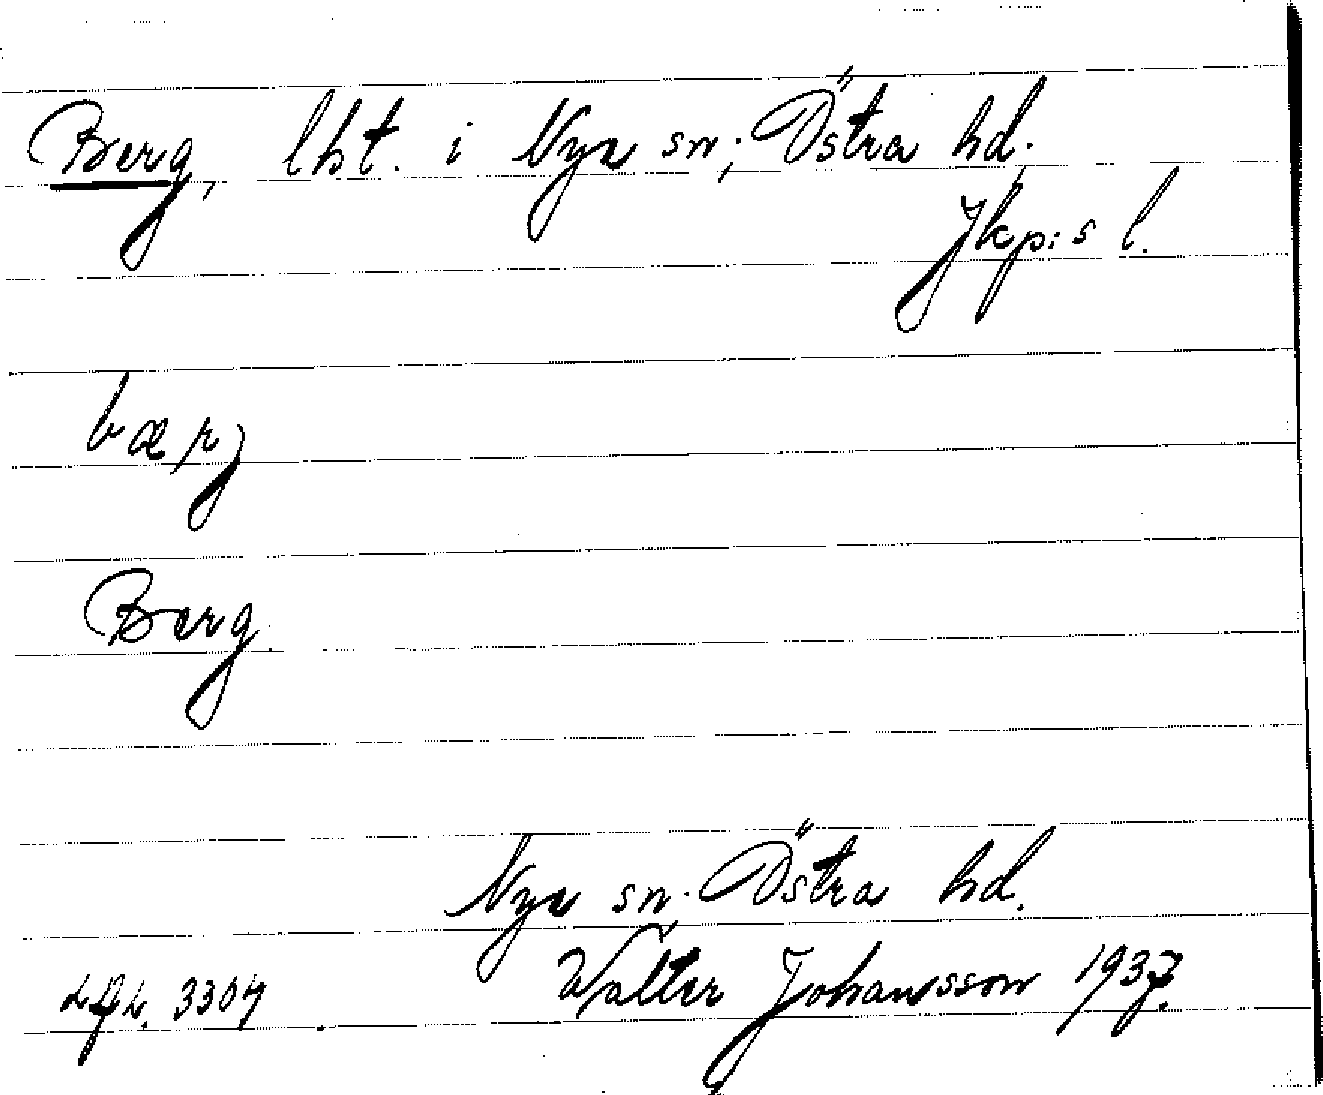 Berg, lht. i Nye sn; Östra hd.
Jkp:s l.
bærj
Berg.
Nye sn. Östra hd.
Walter Johansson 1937.
3304